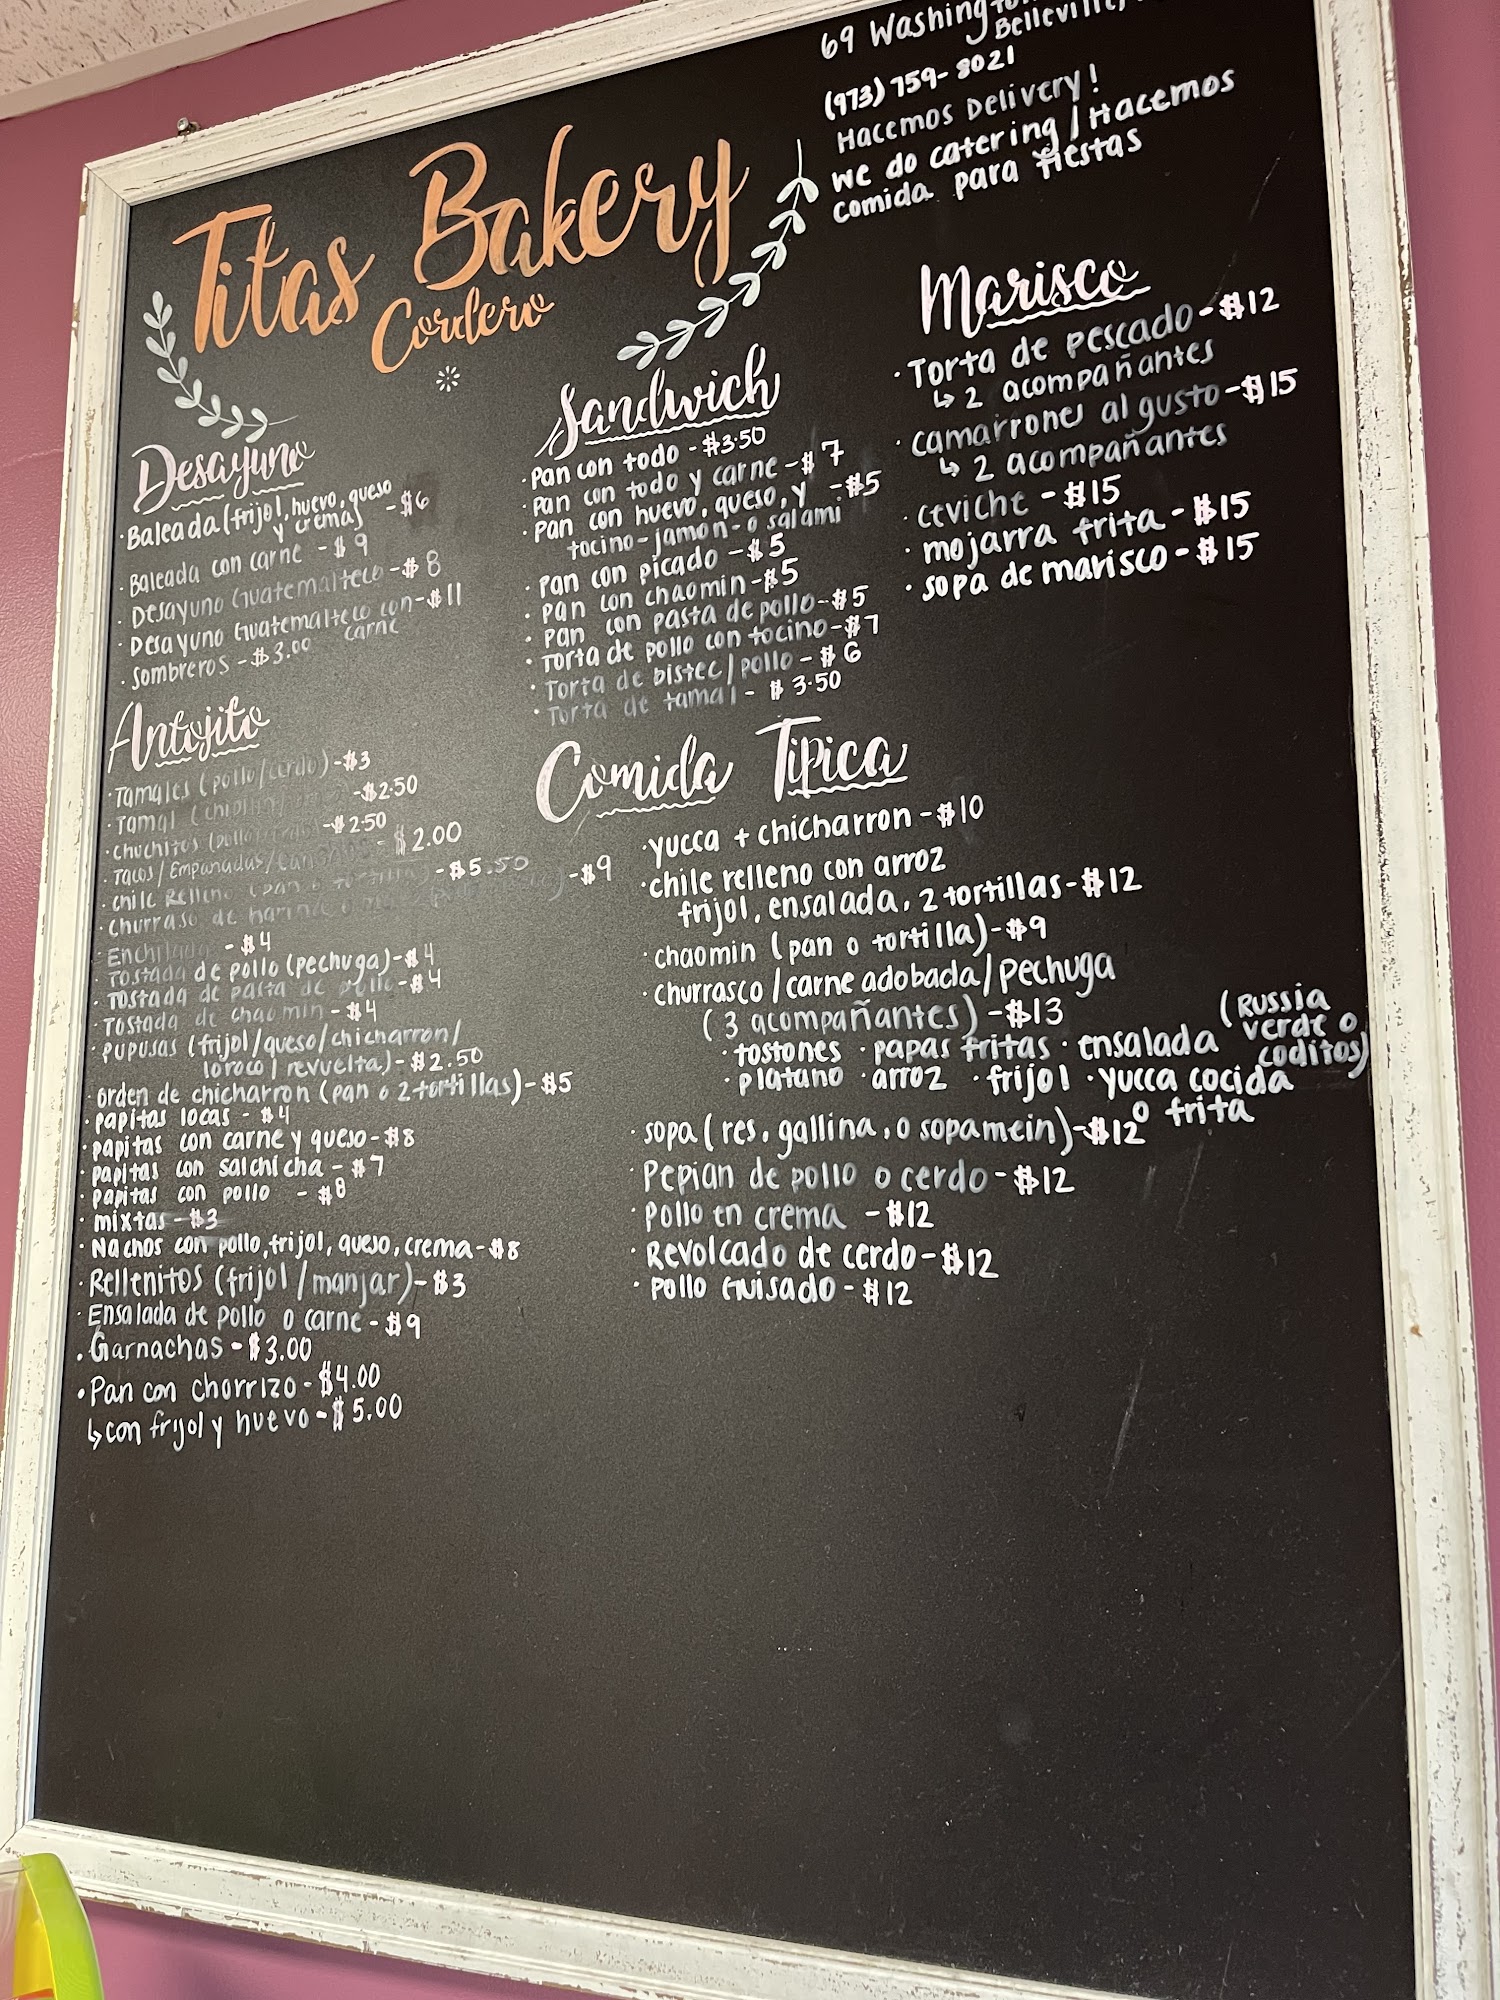 69 Washington
Belleville,
(973) 759-8021
Hacemos Delivery!
we do catering / Hacemos
comida para fiestas
Titas Bakery
Cordero
Desayuno
·Baleada (frijol, huevo, queso
y crema) - $6
·Baleada con carne - $9
·Desayuno Guatemalteco - $8
·Desayuno Guatemalteco con - $11
carne
·Sombreros - $3.00
Antojito
·Tamales (pollo/cerdo) - $3
·Tamal ( - $2.50
·Chuchitos (pollo - $2.50
·Tacos/Empanadas/ - $2.00
·chile Relleno (pan o tortilla - $5.50
·churraso de harina - $9
·Enchilada - $4
·Tostada de pollo (pechuga) - $4
·Tostada de pasta de pollo - $4
·Tostada de chaomin - $4
·pupusas (frijol/queso/chicharron/
loroco/revuelta) - $2.50
·orden de chicharron (pan o 2 tortillas) - $5
·papitas locas - $4
·papitas con carne y queso - $8
·papitas con salchicha - $7
·papitas con pollo - $8
·mixtas - $3
·Nachos con pollo, frijol, queso, crema - $8
·Rellenitos (frijol/manjar) - $3
·Ensalada de pollo o carne - $9
·Garnachas - $3.00
·Pan con chorrizo - $4.00
↳ con frijol y huevo - $5.00
Sandwich
·Pan con todo - $3.50
·Pan con todo y carne - $7
·Pan con huevo, queso, y - $5
tocino-jamon-o salami
·Pan con picado - $5
·Pan con chaomin - $5
·Pan con pasta de pollo - $5
·Torta de pollo con tocino - $7
·Torta de bistec/pollo - $6
·Torta de tamal - $3.50
Marisco
·Torta de pescado - $12
↳ 2 acompañantes
·camarrones al gusto - $15
↳ 2 acompañantes
·ceviche - $15
·mojarra frita - $15
·sopa de marisco - $15
Comida Tipica
·yucca + chicharron - $10
·chile relleno con arroz
frijol, ensalada, 2 tortillas - $12
·chaomin (pan o tortilla) - $9
·churrasco/carne adobada/pechuga
(3 acompañantes) - $13
·tostones ·papas fritas ·ensalada (Russia
verde o
coditos)
·platano ·arroz ·frijol ·yucca cocida
o frita
·sopa (res, gallina, o sopamein) - $12
·Pepian de pollo o cerdo - $12
·Pollo en crema - $12
·Revolcado de cerdo - $12
·Pollo Guisado - $12